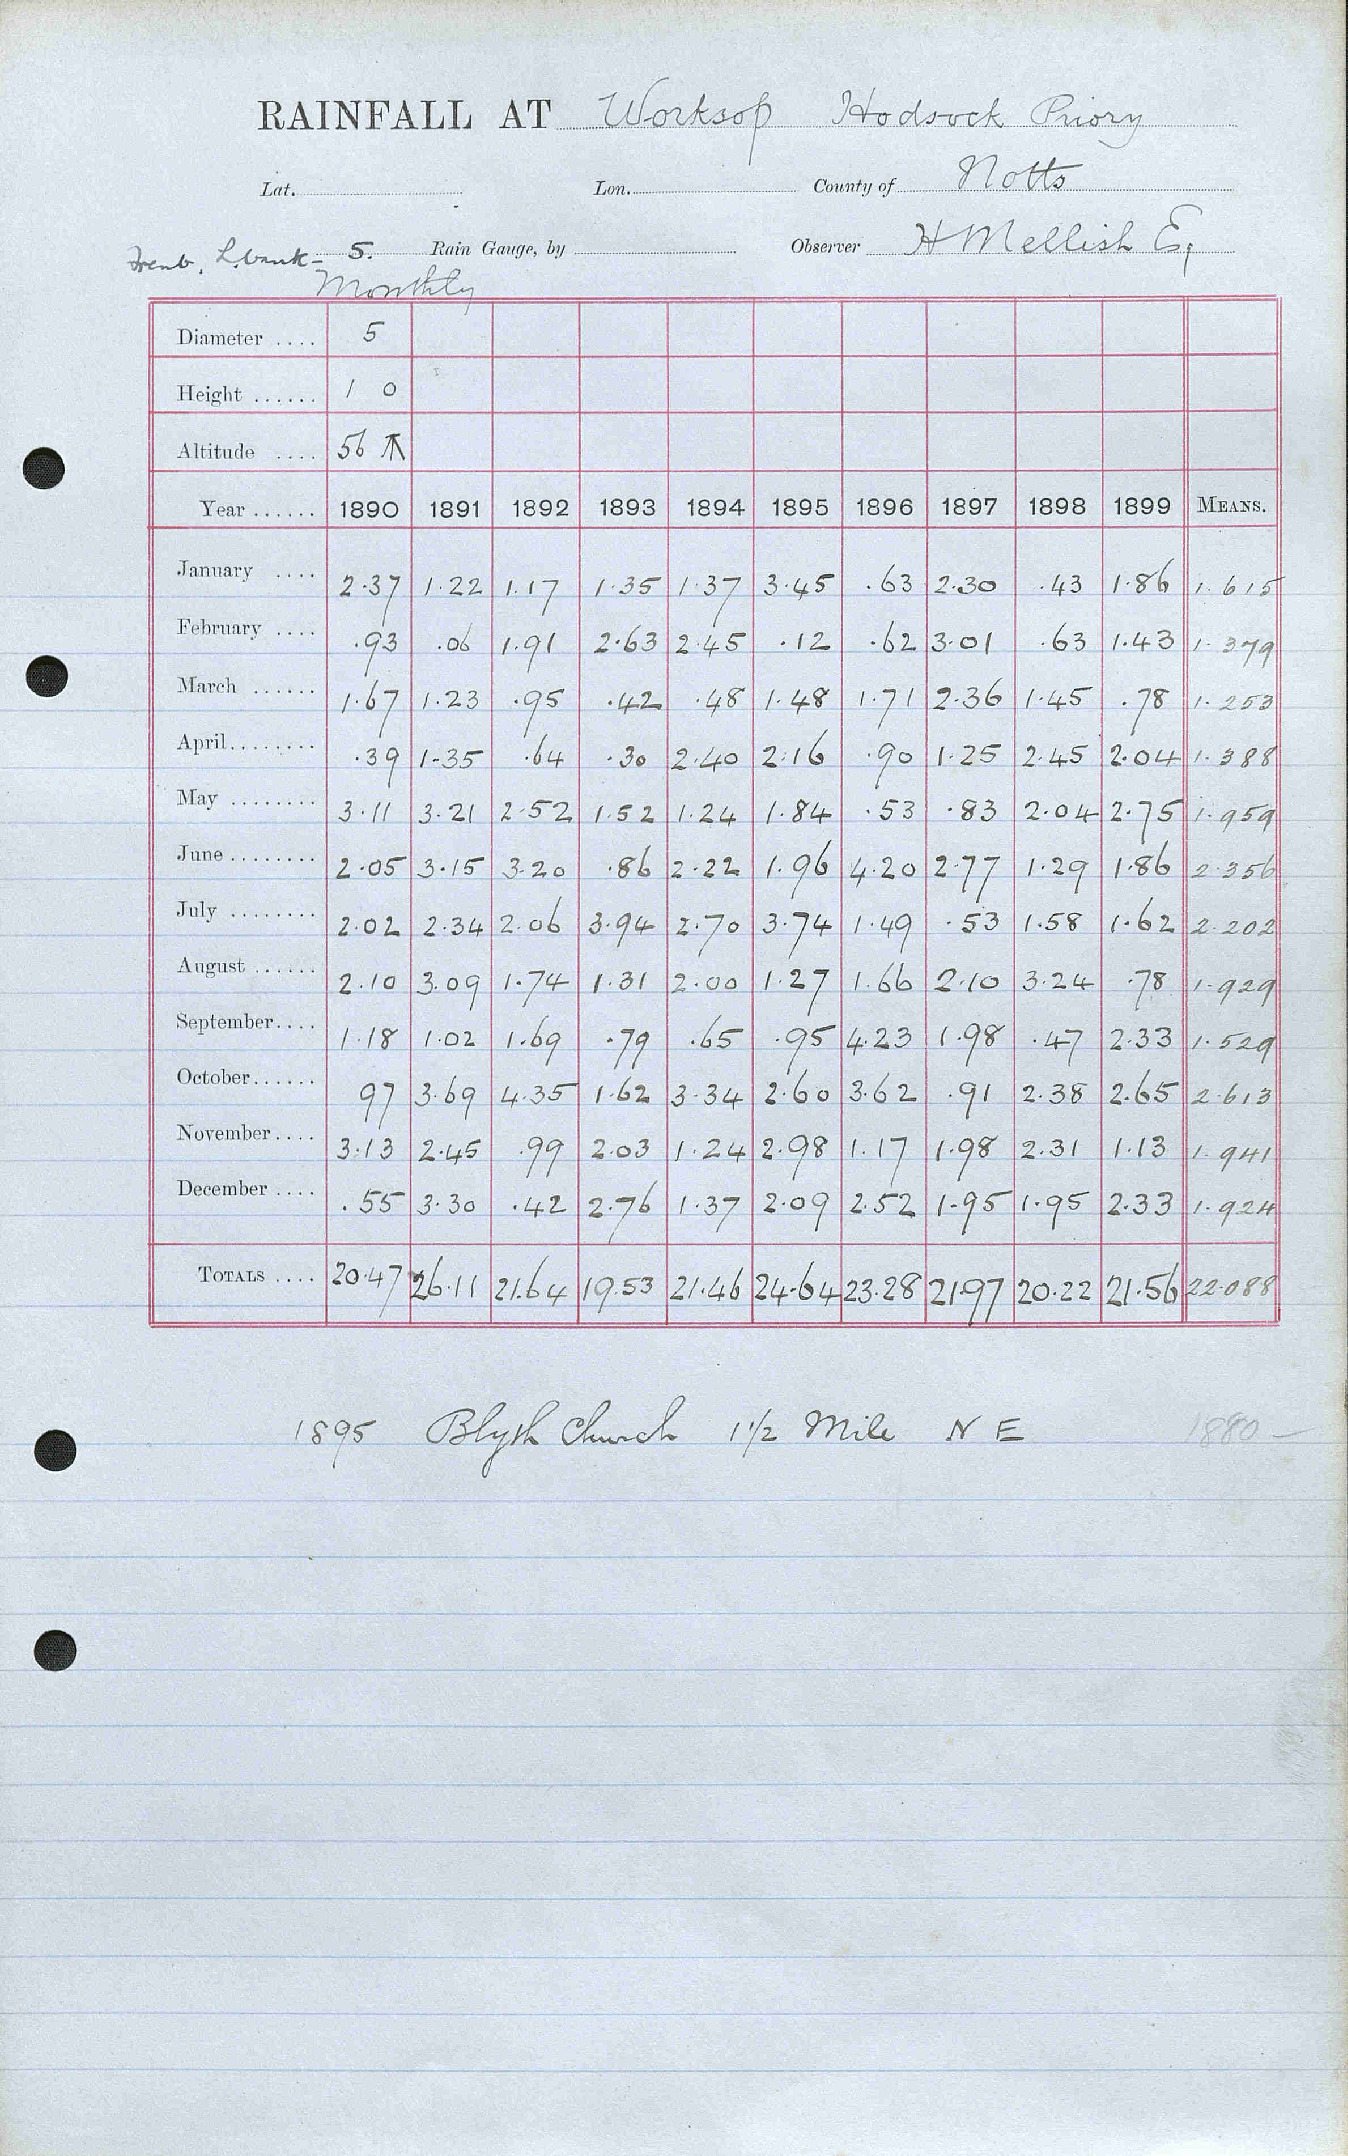 RAINFALL AT Worksop Hodsock Priory
Lat. Lon. County of Notts
Trent, L. bank- 5. Rain Gauge, by Observer H Mellish Esq
Monthly
Diameter .... 5
Height ...... 1 0
Altitude .... 56
Year ...... 1890 1891 1892 1893 1894 1895 1896 1897 1898 1899 MEANS.
January .... 2.37 1.22 1.17 1.35 1.37 3.45 .63 2.30 .43 1.86 1.615
February .... .93 .06 1.91 2.63 2.45 .12 .62 3.01 .63 1.43 1.379
March ...... 1.67 1.23 .95 .42 .48 1.48 1.71 2.36 1.45 .78 1.253
April........ .39 1.35 .64 .30 2.40 2.16 .90 1.25 2.45 2.04 1.388
May ........ 3.11 3.21 2.52 1.52 1.24 1.84 .53 .83 2.04 2.75 1.959
June ........ 2.05 3.15 3.20 .86 2.22 1.96 4.20 2.77 1.29 1.86 2.356
July ........ 2.02 2.34 2.06 3.94 2.70 3.74 1.49 .53 1.58 1.62 2.202
August ...... 2.10 3.09 1.74 1.31 2.00 1.27 1.66 2.10 3.24 .78 1.929
September.... 1.18 1.02 1.69 .79 .65 .95 4.23 1.98 .47 2.33 1.529
October...... 97 3.69 4.35 1.62 3.34 2.60 3.62 .91 2.38 2.65 2.613
November.... 3.13 2.45 .99 2.03 1.24 2.98 1.17 1.98 2.31 1.13 1.941
December .... .55 3.30 .42 2.76 1.37 2.09 2.52 1.95 1.95 2.33 1.924
TOTALS .... 20.47 26.11 21.64 19.53 21.46 24.64 23.28 21.97 20.22 21.56 22.088
1895 Blyth Church 1 1/2 Mile N E 1880 —